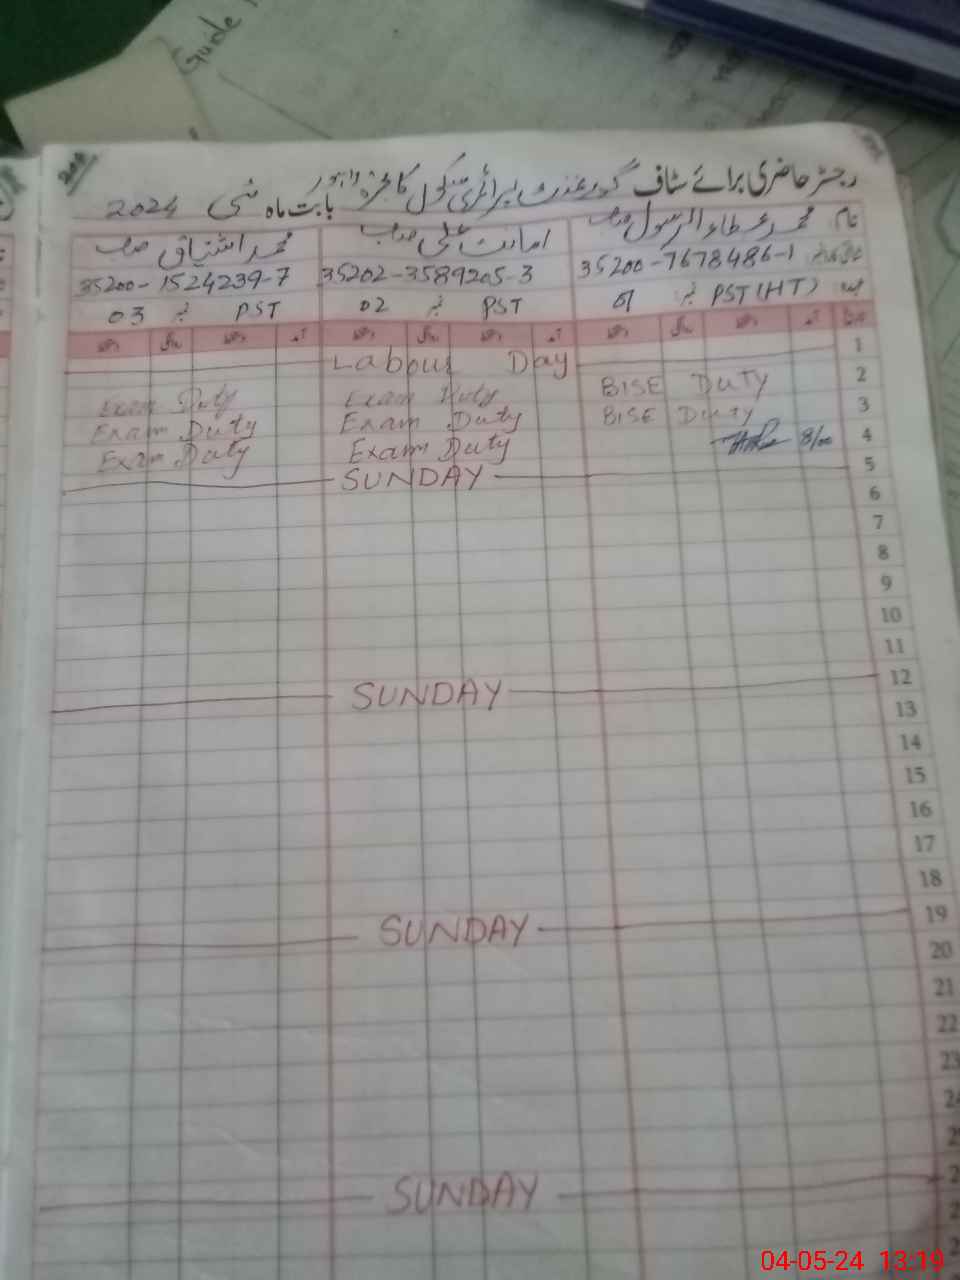 Guide
رجسٹر حاضری برائے سٹاف گورنمنٹ پرائمری سکول کاہنہ لاہور بابت ماہ مئی 2024
نام محمد عطاء الرسول صاحب امانت علی صاحب محمد اشتیاق صاحب
35200-7678486-1 35202-3589205-3 35200-1524239-7
عہدہ PST (HT) نمبر 01 PST نمبر 02 PST نمبر 03
تاریخ آمد دستخط روانگی دستخط آمد دستخط روانگی دستخط آمد دستخط روانگی دستخط
1 Labour Day
2 BISE DUTY Exam Duty Exam Duty
3 BISE DUTY Exam Duty Exam Duty
4 8/00 Exam Duty Exam Duty
5 SUNDAY
6
7
8
9
10
11
12 SUNDAY
13
14
15
16
17
18
19 SUNDAY
20
21
22
23
SUNDAY
04-05-24 13:19